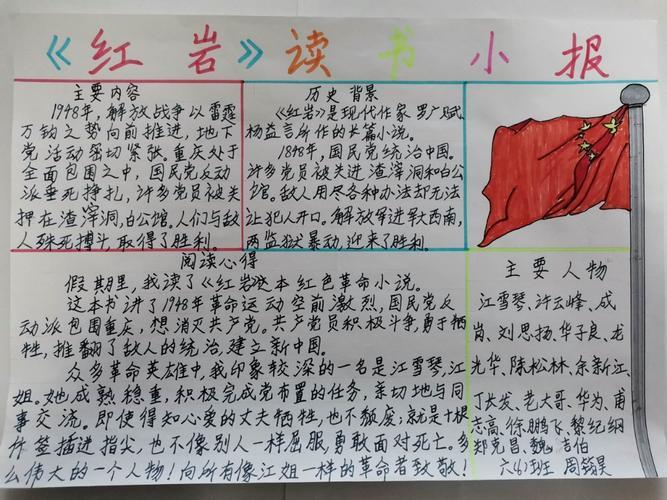 《红岩》读书小报
主要内容
1948年，解放战争以雷霆
万钧之势向前推进，地下
党活动密切紧张。重庆处于
全面包围之中，国民党反动
派垂死挣扎，许多党员被关
押在渣滓洞，白公馆。人们与敌
人殊死搏斗，取得了胜利。
历史背景
《红岩》是现代作家罗广斌，
杨益言所作的长篇小说。
1898年，国民党统治中国。
许多党员被关进渣滓洞和白公
馆。敌人用尽各种办法却无法
让犯人开口。解放军进军大西南，
两监狱暴动，迎来了胜利。
阅读心得
假期里，我读了《红岩》这本红色革命小说。
这本书讲了1948年革命运动空前激烈，国民党反
动派包围重庆，想消灭共产党。共产党员积极斗争，勇于牺
牲，推翻了敌人的统治，建立新中国。
众多革命英雄中，我印象较深的一名是江雪琴，江
姐。她成熟稳重，积极完成党布置的任务，亲切地与同
事交流。即使得知心爱的丈夫牺牲，也不颓废；就是十根
竹签插进指尖，也不像别人一样屈服，勇敢面对死亡。多
么伟大的一个人物！向所有像江姐一样的革命者致敬！
主要人物
江雪琴、许云峰、成
岗、刘思扬、华子良、龙
光华、陈松林、余新江、
丁长发、艺大哥、华为、甫
志高、徐鹏飞、黎纪纲
郑克昌、魏吉伯
六(1)班 周锦昊